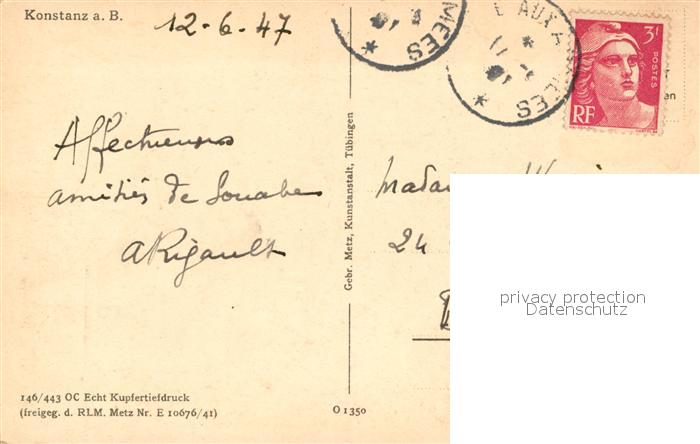 Konstanz a. B.
12-6-47
MÉES
* 
E AUX ARMÉES
*
*
3f
POSTES
RF
en
Affectueuses
amitiés de Souabe
A Rigault
Gebr. Metz, Kunstanstalt, Tübingen
Madame
24
privacy protection
Datenschutz
146/443 OC Echt Kupfertiefdruck
(freigeg. d. RLM. Metz Nr. E 10676/41)
O 1350